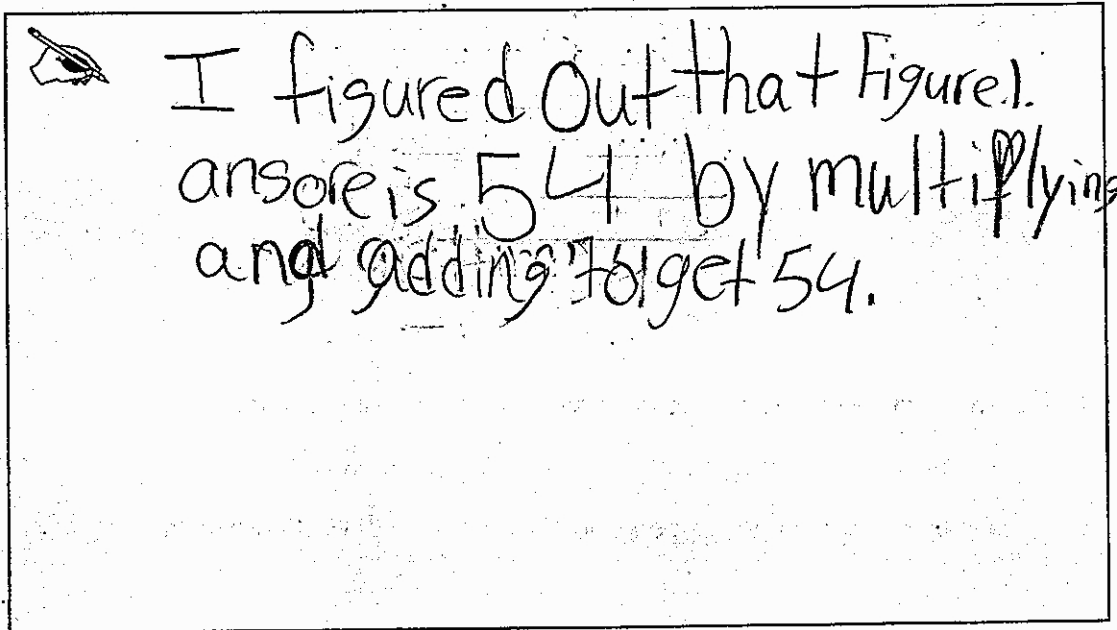 I figured Out that Figure 1.
ansore is 54 by multiplying
and adding to get 54.